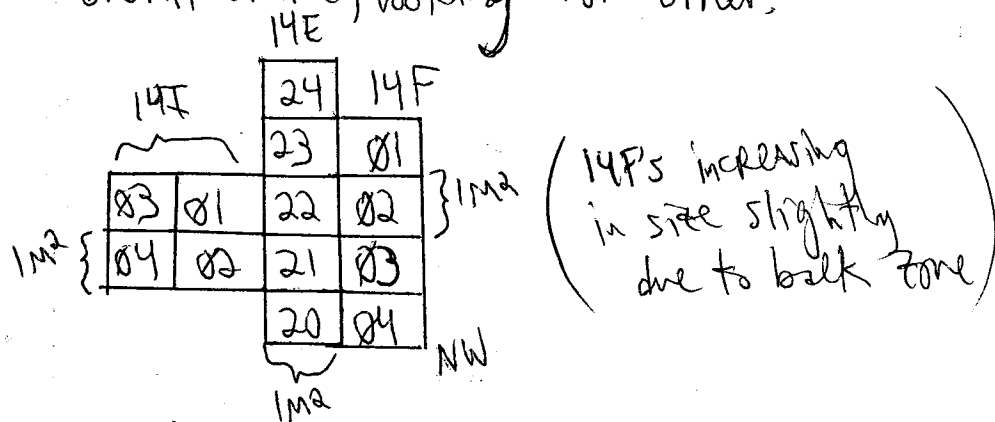 looking for other.
14E
14I 24 14F
23 Ø1
Ø3 Ø1 22 Ø2 } 1M2
1M2 { Ø4 Ø2 21 Ø3
20 Ø4
NW
1M2
(14F's increasing
in size slightly
due to balk zone)